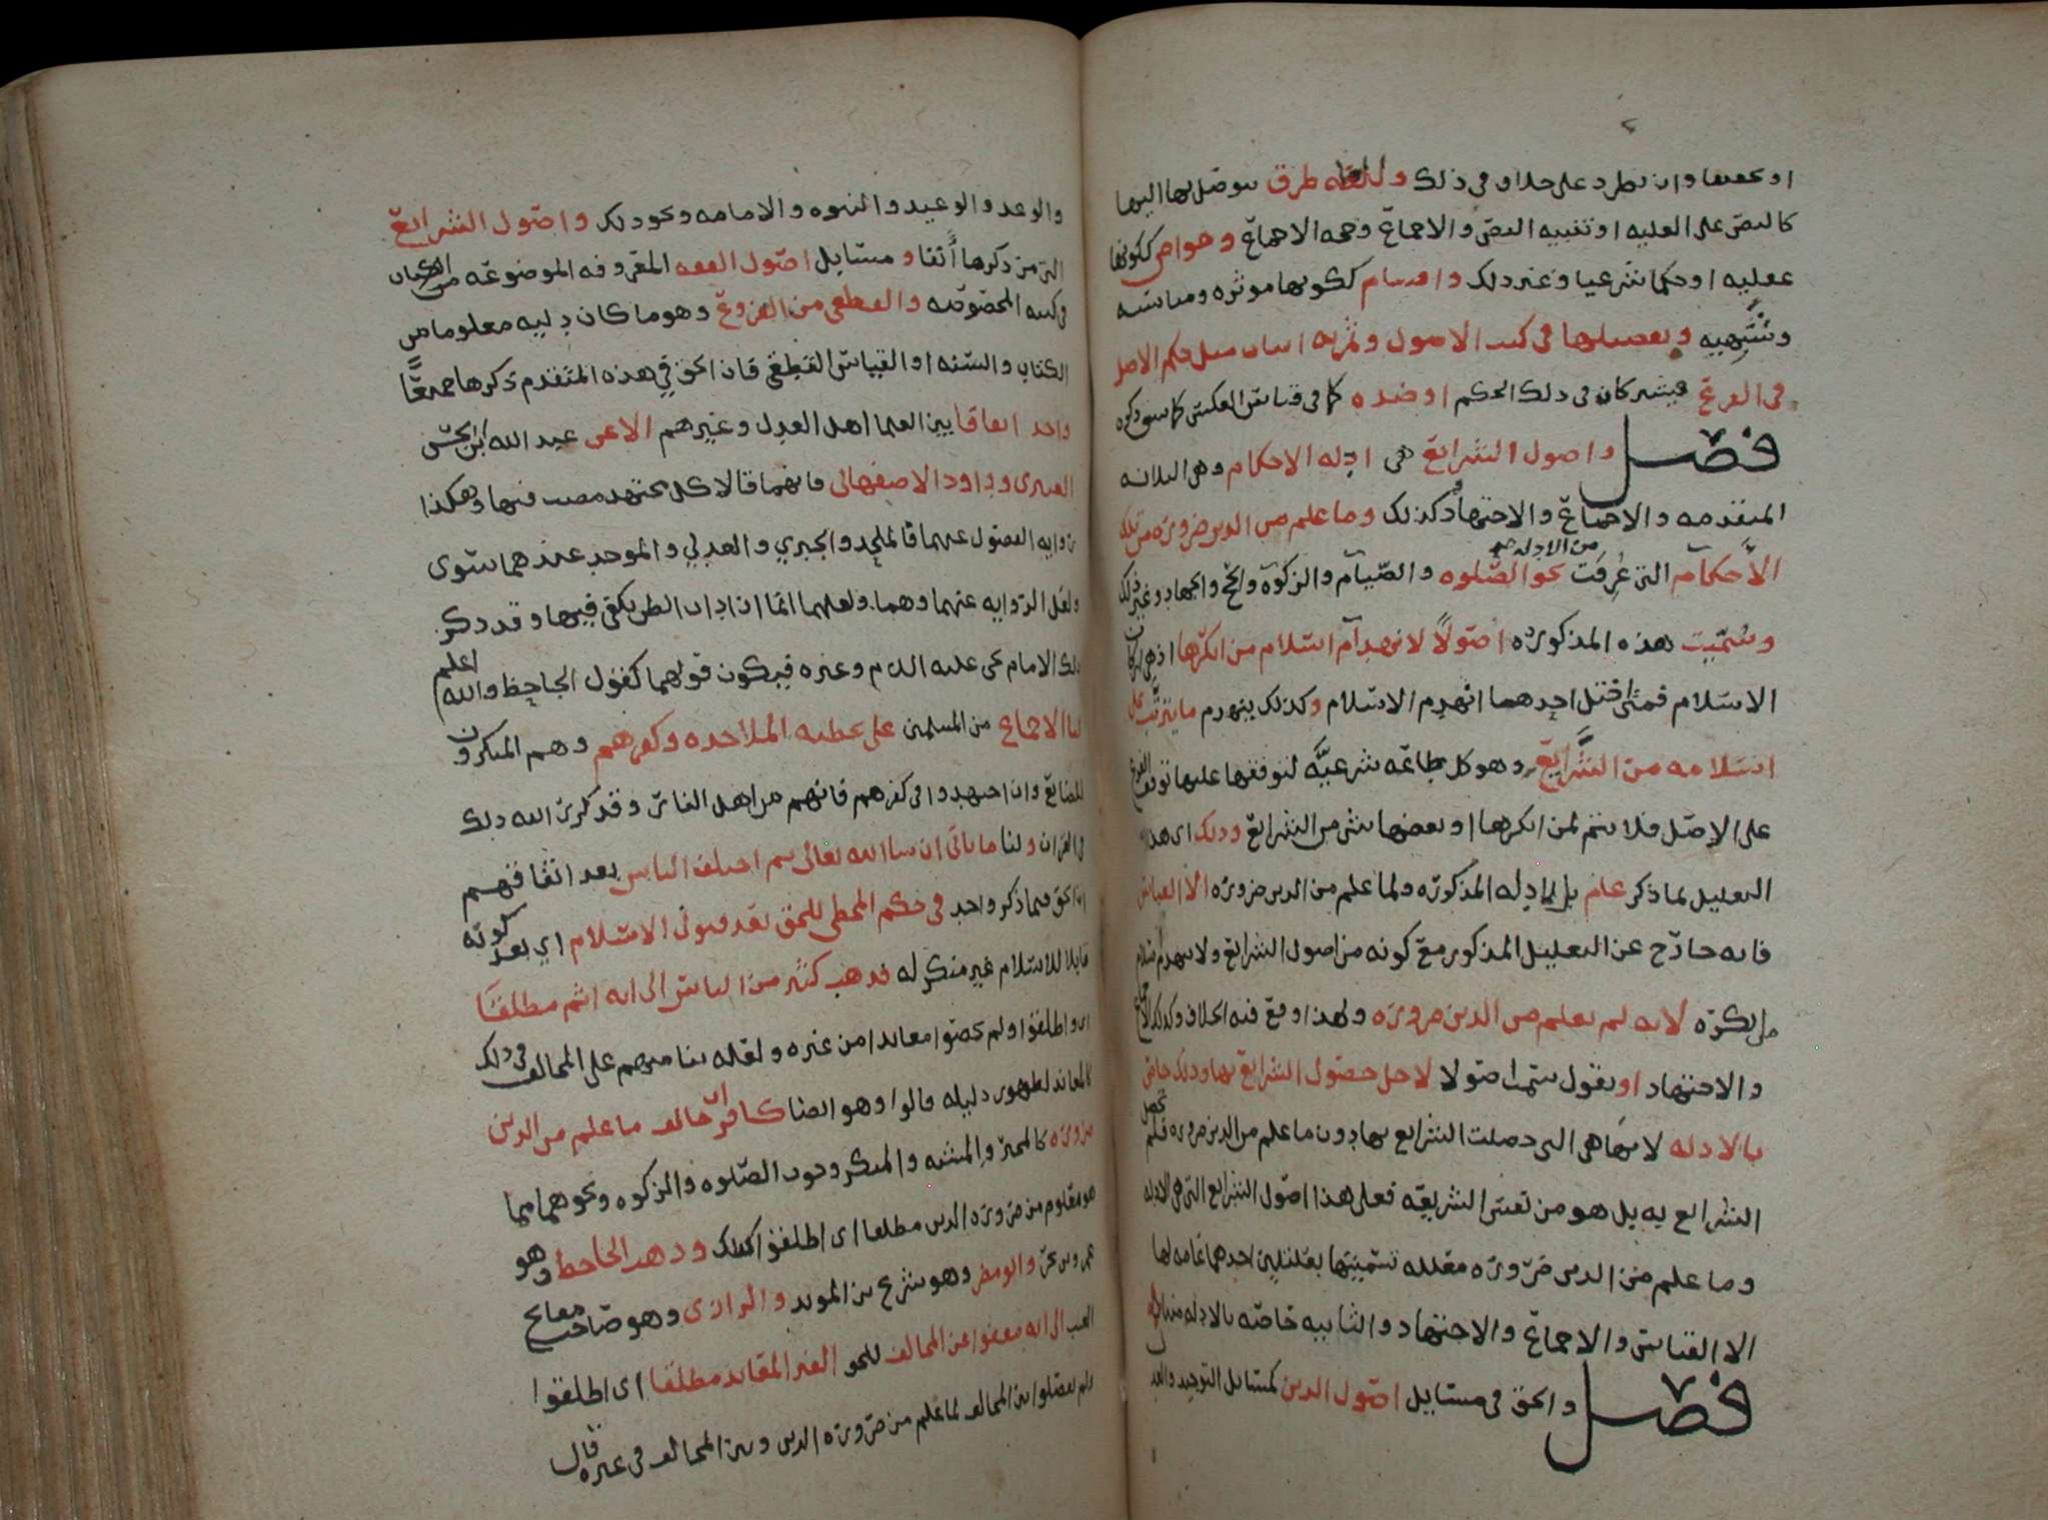 او بعضها وان تطرد على خلاف في ذلك وللعله طرق يتوصل بها اليها
كالنص على العليه او تنبيه النص والاجماع وحجه الاجماع وخواص ككونها
عقليه او حكما شرعيا وغير ذلك واقسام ككونها موثره ومناسبه
وشبهيه وتفصيلها في كتب الاصول وثمرته اثبات مثل حكم الاصل
في الفرع فيشتركان في ذلك الحكم او ضده كما في قياس العكس كما سبق ذكره
فصل واصول الشرائع هي ادله الاحكام وهي الثلاثه
المتقدمه والاجماع والاجتهاد وكذلك وما علم من الدين ضروره من تلك
الاحكام التي عرفت من الادله نحو الصلوه والصيام والزكوه والحج والجهاد وغير ذلك
وسميت هذه المذكوره اصولا لانهدام اسلام من انكرها اذ هي اركان
الاسلام فمتى اختل احدهما انهدم الاسلام وكذلك ينهدم ما يترتب على
اسلامه من الشرايع وهو كل طاعه شرعيه لتوقفها عليها توقف الفرع
على الاصل فلا يتم لمن انكرها او بعضها شي من الشرائع وذلك اي هذا
التعليل بما ذكر عام للادله المذكوره ولما علم من الدين ضروره الا القياس
فانه خارج عن التعليل المذكور مع كونه من اصول الشرائع ولا ينهدم اسلام
من انكره لانه لم يعلم من الدين ضروره ولهذا وقع فيه الخلاف وكذلك الاجماع
والاجتهاد او نقول سميت اصولا لاجل حصول الشرائع بها وذلك خاص
بالادله لانها هي التي حصلت الشرايع بها دون ما علم من الدين ضروره فلم تحصل
الشرايع به بل هو من نفس الشريعه فعلى هذا اصول الشرايع التي هي الادله
وما علم من الدين ضروره معلله تسميتها بعلتين احدهما عامه لها
الا القياس والاجماع والاجتهاد والثانيه خاصه بالادله
فصل والحق في مسايل اصول الدين كمسايل التوحيد والعدل
والوعد والوعيد والنبوه والامامه ونحو ذلك واصول الشرائع
التي مر ذكرها آنفا ومسايل اصول الفقه المعروفه الموضوعه
في كتبه المخصوصه والقطعي من الفروع وهو ما كان دليله معلوما من
الكتاب والسنه او القياس القطعي فان الحق في هذه المتقدم ذكرها جميعا
واحد اتفاقا بين العلما اهل العدل وغيرهم الا عن عبد الله ابن الحسن
العنبري وداود الاصفهاني فانهما قالا كل مجتهد مصيب فيها وهكذا
روايه الفصول عنهما فالملحد والجبري والعدلي والموحد عندهما سوى
ولعل الروايه عنهما وهما ولعلهما انما ارادا ان الظن يكفي فيها وقد ذكر
ذلك الامام يحيى عليه السلام وغيره فيكون قولهما كقول الجاحظ والله اعلم
لنا الاجماع من المسلمين على تخطيه الملاحده وكفرهم وهم المنكرون
للصانع وان اجتهدوا في كفرهم فانهم من اهل النار وقد كرر الله ذلك
في القران ولنا ما ياتي ان شا الله تعالى ثم اختلف الناس بعد اتفاقهم
ان الحق فيما ذكر واحد في حكم المخطي للحق بعد قبول الاسلام اي بعد كونه
قابلا للاسلام غير منكر له فذهب كثير من الناس الى انه آثم مطلقا
اي واطلقوا ولم يخصوا معاندا من غيره ولعله بنا منهم على المخالف في ذلك
كالمعاند لظهور دليله قالوا وهو ايضا كافر ان خالف ما علم من الدين
ضروره كالمجبر والمشبه والمنكر وجوب الصلوه والزكوه ونحوهما مما
هو معلوم من ضروره الدين مطلقا اي اطلقوا كذلك وذهب الجاحظ وهو
عمرو بن بحر وابو مضر وهو شريح بن المويد والرازي وهو صاحب مفاتح
الغيب الى انه معفوا عن المخالف للحق الغير المعاند مطلقا اي اطلقوا
ولم يفصلوا بين المخالف لما علم من ضروره الدين وبين المخالف في غيره قال